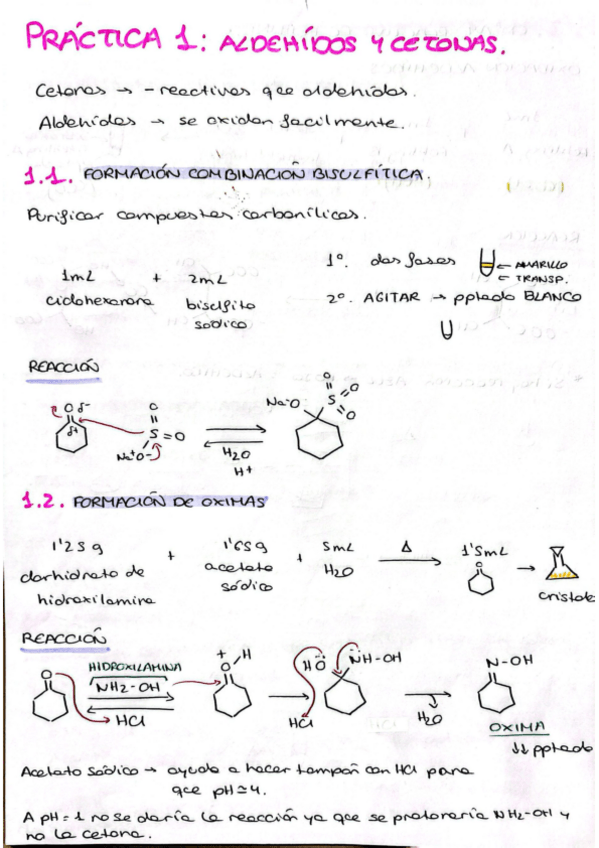 PRÁCTICA 1: ALDEHÍDOS Y CETONAS.
Cetonas → - reactivas que aldehidos.
Aldehidos → se oxidan facilmente.
1.1. FORMACIÓN COMBINACION BISULFÍTICA.
Purificar compuestos carbonílicos.
1mL + 2mL
ciclohexanona bisulfito sódico
1º. dos fases ← AMARILLO
← TRANSP.
2º. AGITAR → pptado BLANCO
REACCIÓN
O δ- δ+ O S = O Na+O-
H2O
H+
Na-O O S O O
1.2. FORMACIÓN DE OXIMAS
1'25g + 1'65g + 5mL Δ 1'5mL
clorhidrato de hidroxilamina acetato sódico H2O O → cristales
REACCIÓN
O HIDROXILAMINA + O H HO NH-OH N-OH
NH2-OH
HCl HCl H2O OXIMA
↓↓ pptado
Acetato sódico → ayuda a hacer tampón con HCl para
que pH≃4.
A pH=1 no se daría la reacción ya que se protonaría NH2-OH y
no la cetona.